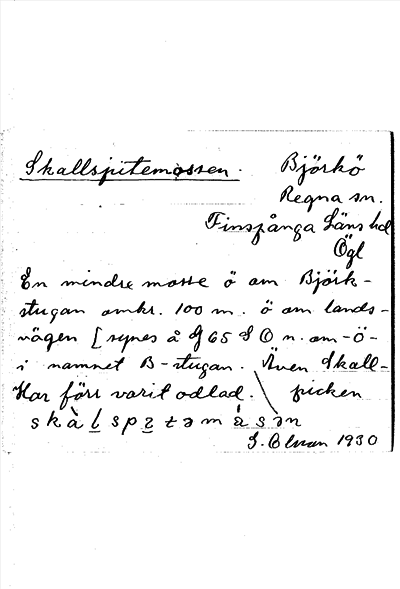 Skallspitemossen.
Björkö
Regna sn.
Finspånga Läns hd
Ögl
En mindre mosse ö om Björk-
stugan omkr. 100 m. ö om lands-
vägen [synes å G 65 S O n. om -ö-
i namnet B-stugan. Även Skall-
Har förr varit odlad. picken
skàlspetəmåsən
G. Olsson 1930